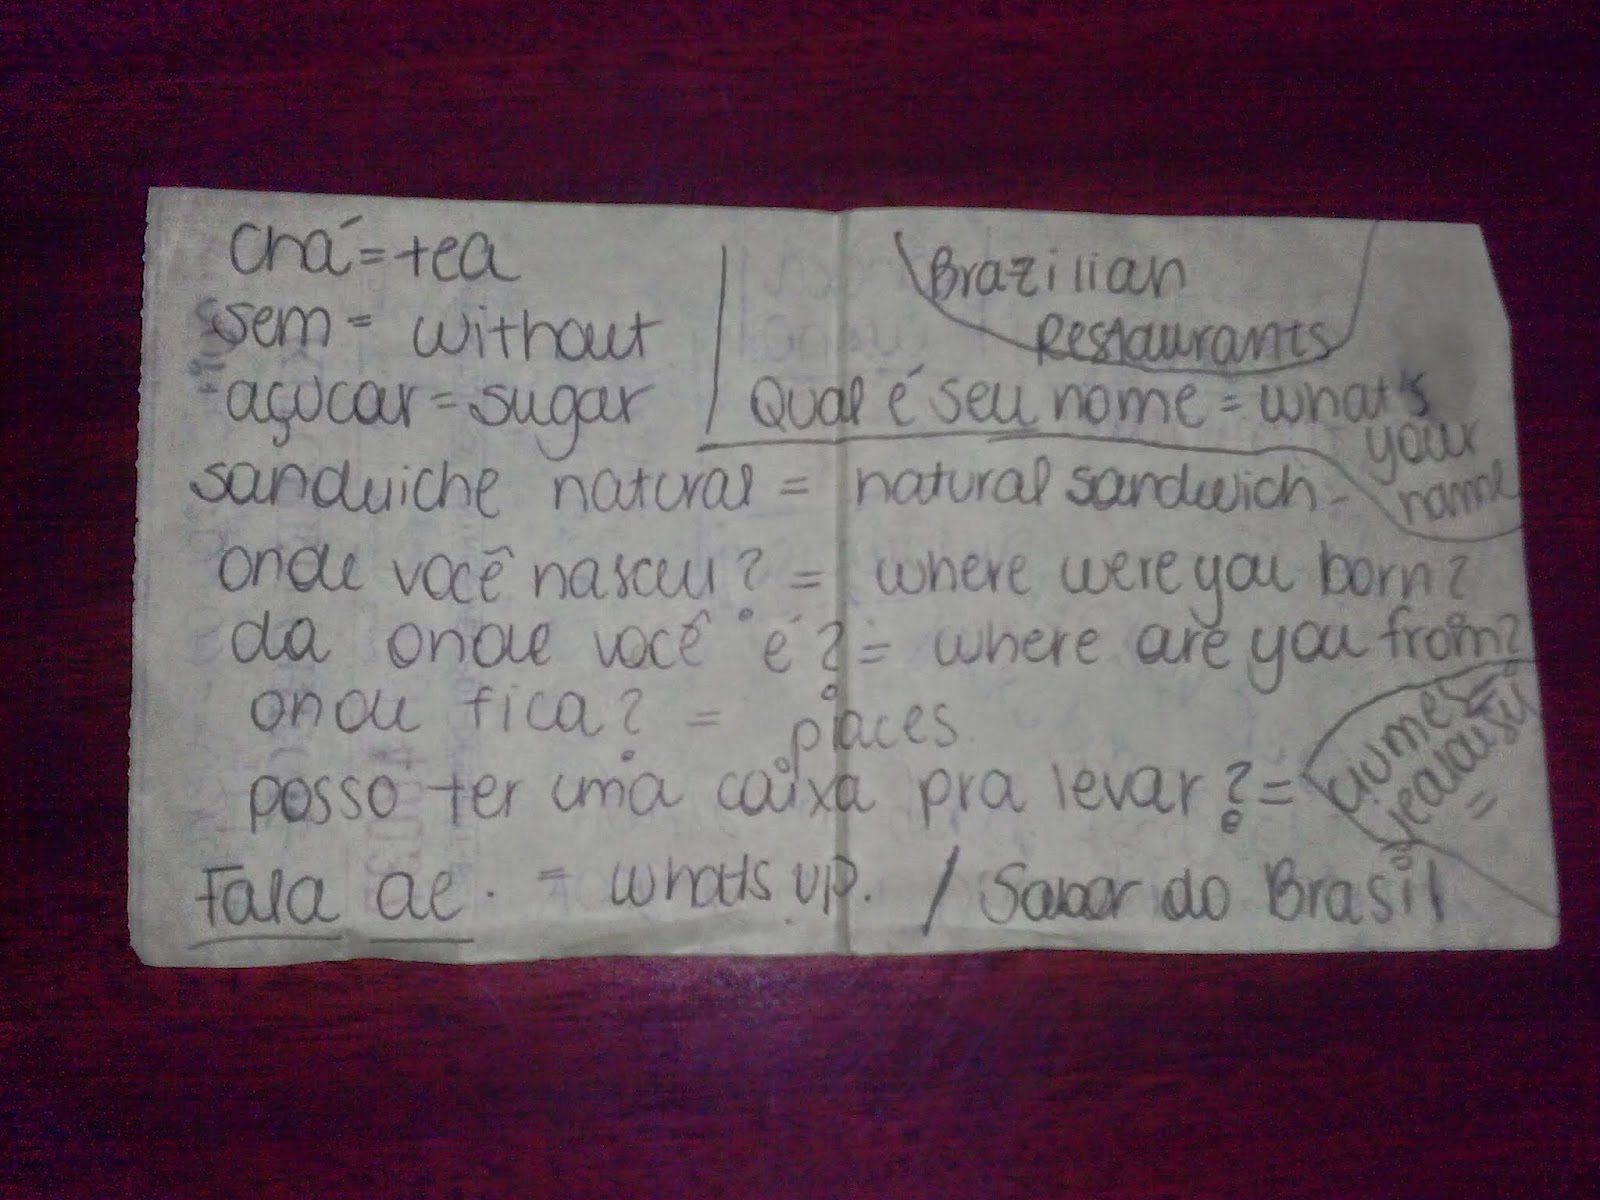 chá = tea
sem = without
açucar = sugar
Brazilian
Restaurants
Qual é seu nome = what's
your
name
sanduiche natural = natural sandwich
onde você nasceu? = where were you born?
da onde você é? = where are you from?
onde fica? = places
posso ter uma caixa pra levar? =
ciumes =
jealousy =
Fala ae. = whats up. / Sabor do Brasil